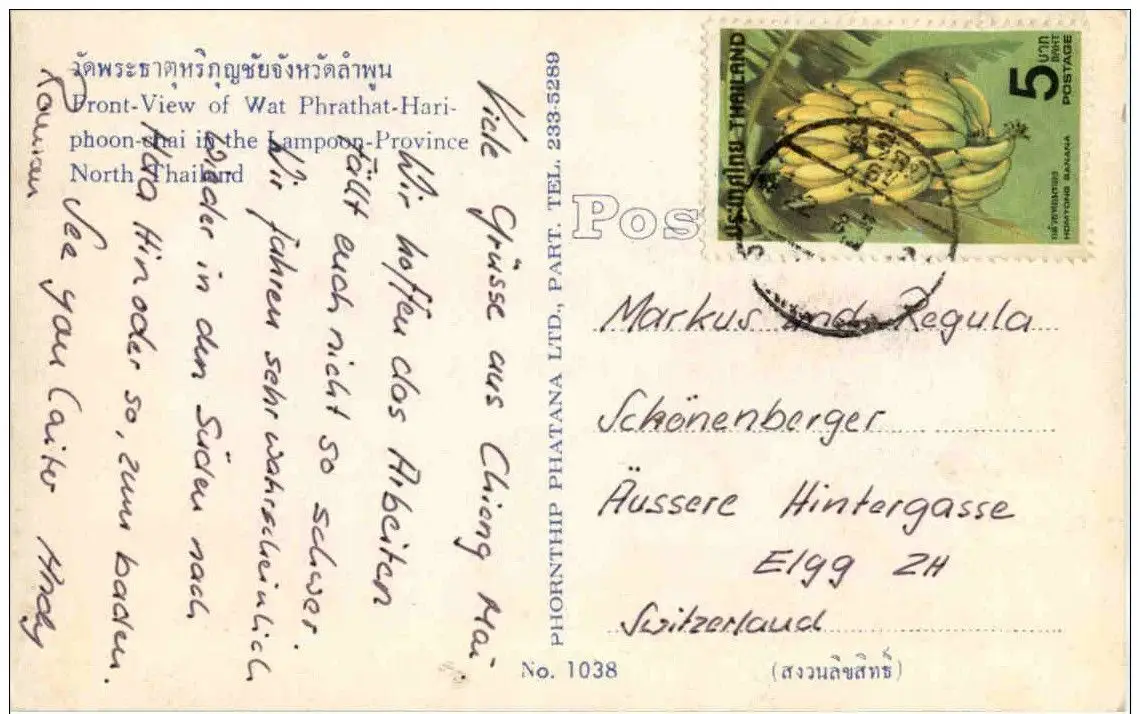 วัดพระธาตุหริภุญชัยจังหวัดลำพูน
Front-View of Wat Phrathat-Hari-
phoon-chai in the Lampoon-Province
North Thailand
Viele Grüsse aus Chieng Mai.
Wir hoffen das Arbeiten
fällt euch nicht so schwer.
Wir fahren sehr wahrscheinlich
wieder in den Süden nach
Hua Hin oder so, zum baden.
See you laiter
PHORNTHIP PHATANA LTD., PART. TEL. 233-5289
Pos
ประเทศไทย THAILAND
5 บาท BAHT
POSTAGE
กล้วยหอมทอง
HOMTONG BANANA
Markus und Regula
Schönenberger
Äussere Hintergasse
Elgg ZH
Switzerland
No. 1038
(สงวนลิขสิทธิ์)